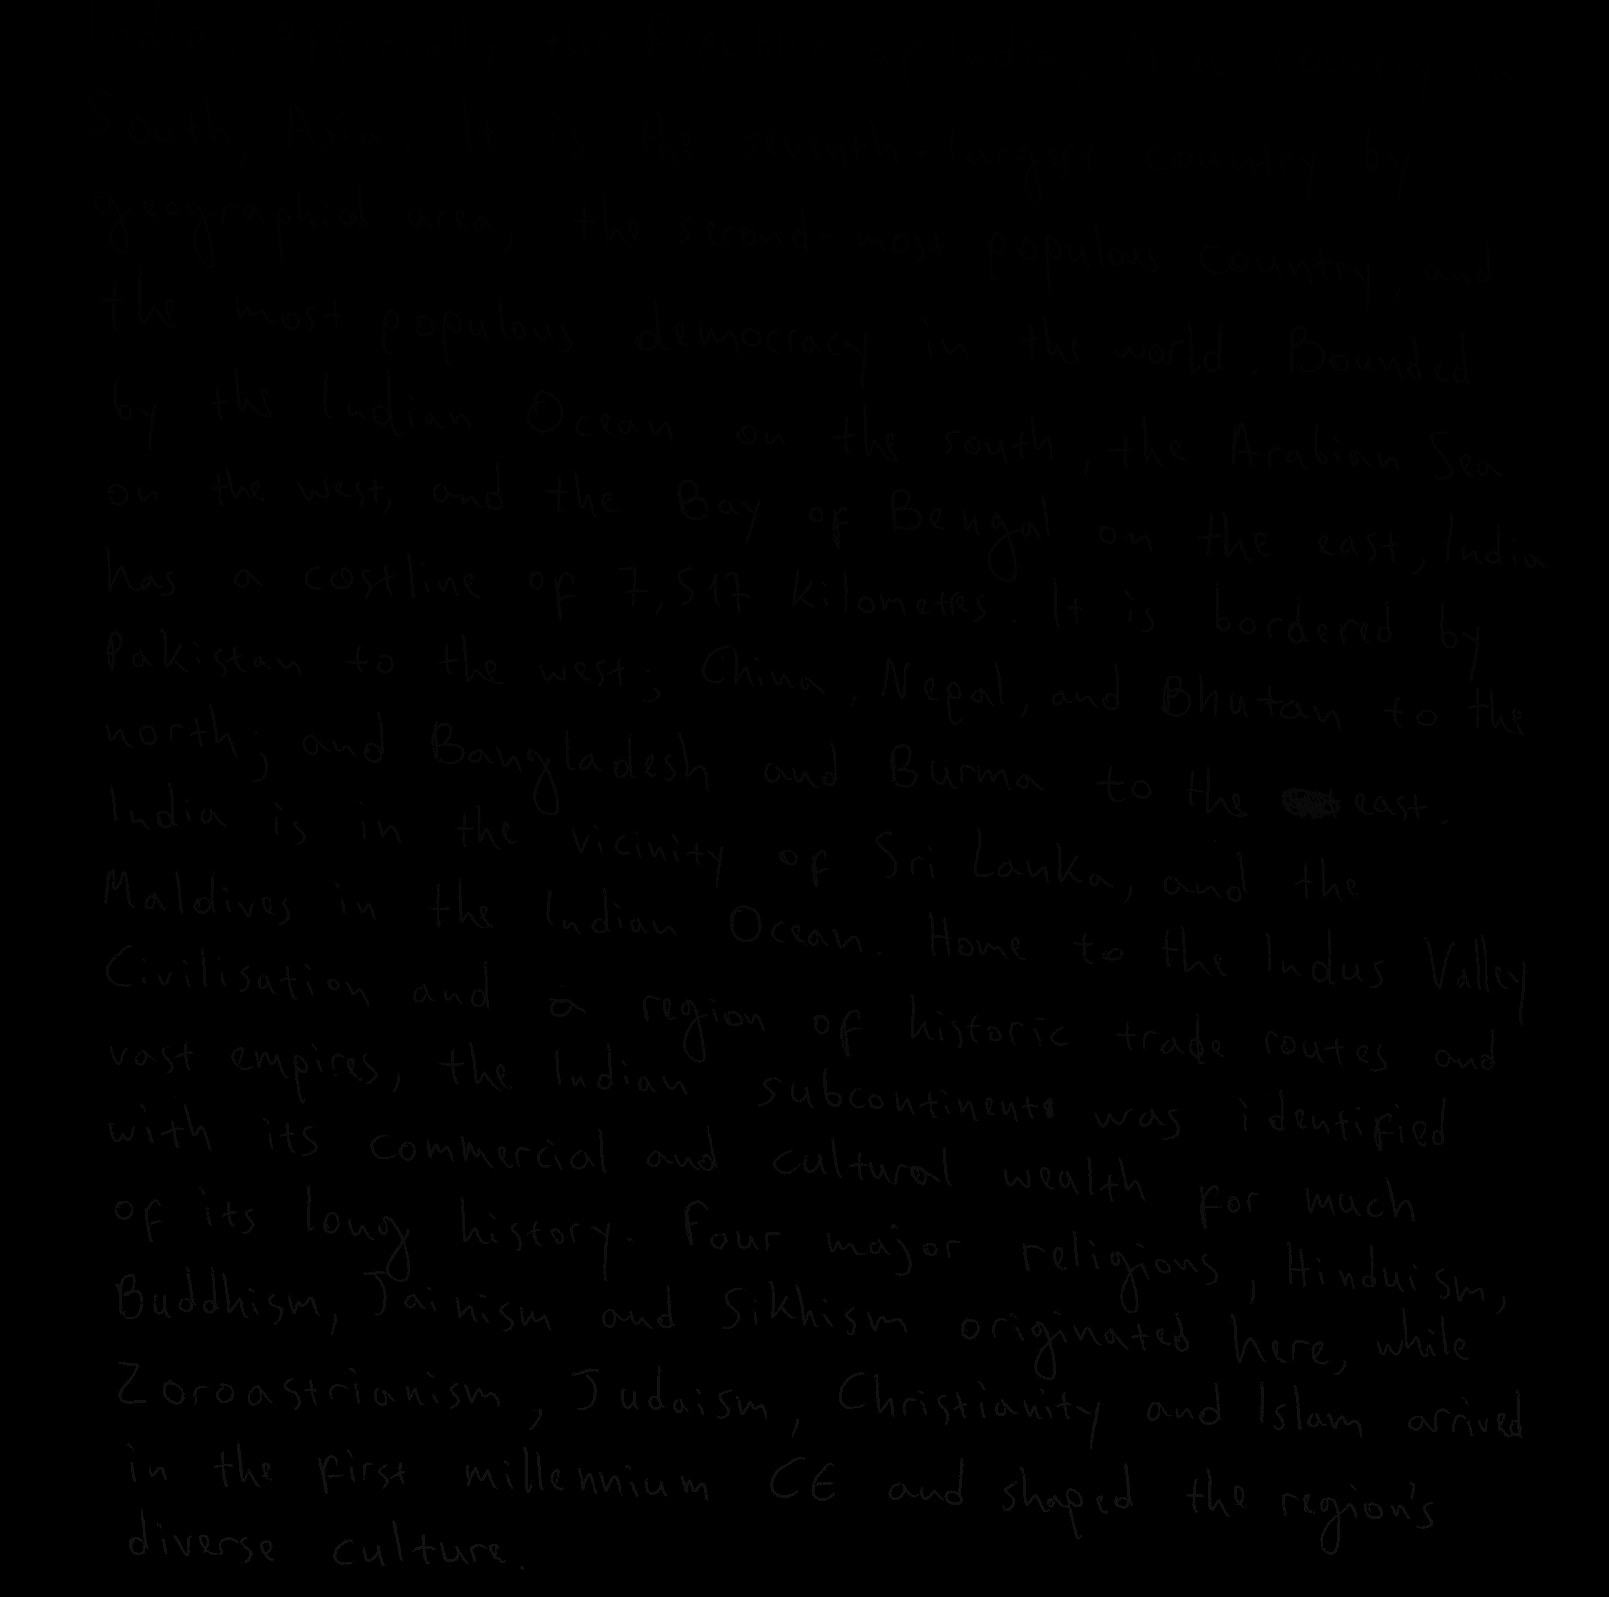 South Asia. It is the seventh-largest country by
geographial area, the second-most populous country, and
the most populous democracy in the world. Bounded
by the Indian Ocean on the south, the Arabian Sea
on the west, and the Bay of Bengal on the east, India
has a costline of 7,517 kilometres. It is bordered by
Pakistan to the west; China, Nepal, and Bhutan to the
north; and Bangladesh and Burma to the east.
India is in the vicinity of Sri Lanka, and the
Maldives in the Indian Ocean. Home to the Indus Valley
Civilisation and a region of historic trade routes and
vast empires, the Indian subcontinent was identified
with its commercial and cultural wealth for much
of its long history. Four major religions, Hinduism,
Buddhism, Jainism and Sikhism originated here, while
Zoroastrianism, Judaism, Christianity and Islam arrived
in the first millennium CE and shaped the region's
diverse culture.